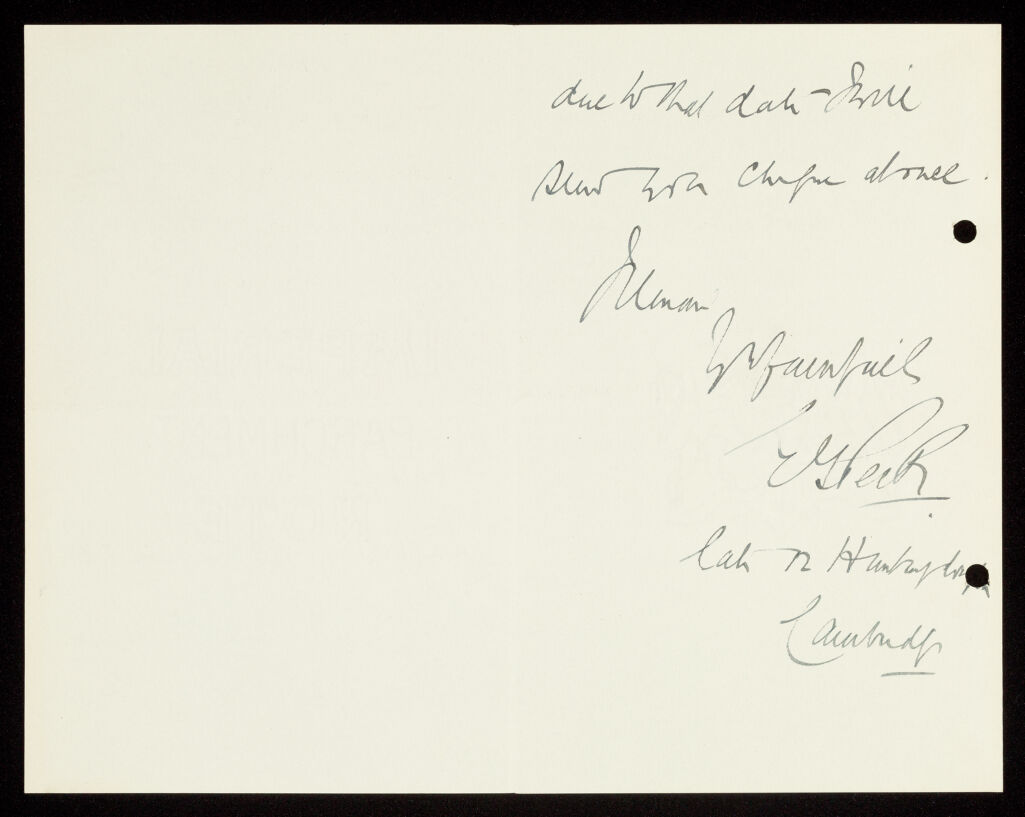 due to that date I will
send you cheque at once.
I remain
Yrs faithfully
E G Peck
late 72 Huntingdon Rd
Cambridge